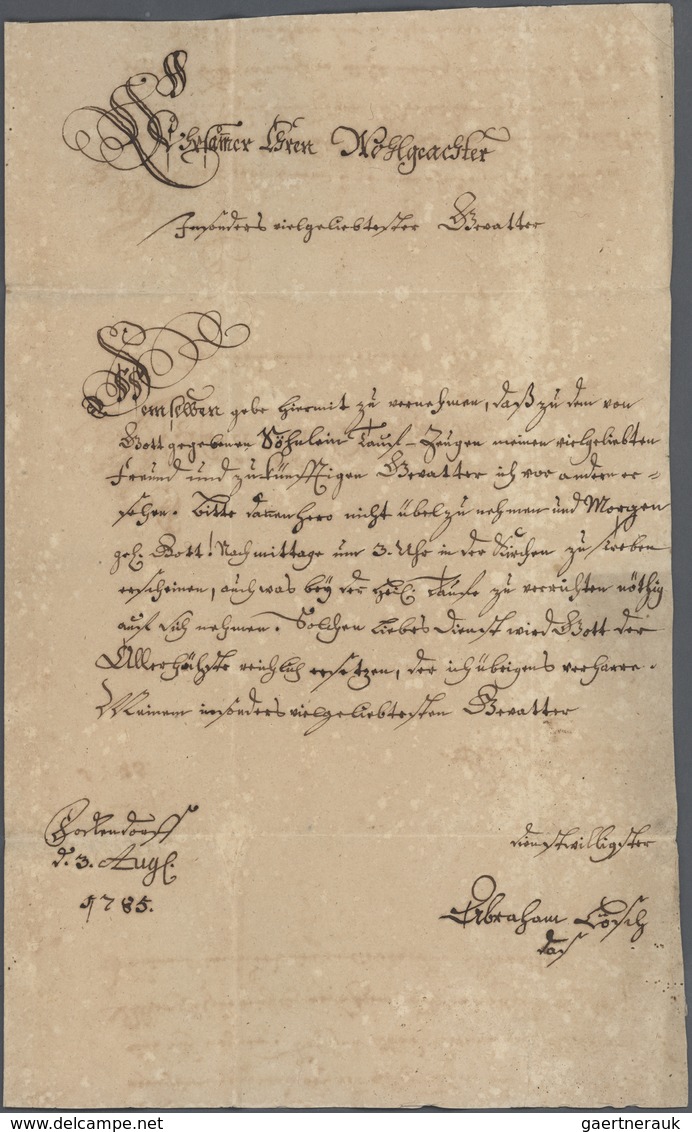 Ehrsamer Ehren Wohlgeachter
Insonders vielgeliebtester Gevatter
Demselben gebe hiermit zu vernehmen, daß zu dem von
Gott gegebenen Söhnlein Tauf-Zeugen meinen vielgeliebten
Freund und zukünfftigen Gevatter ich vor andern er=
sehen. Bitte dannenhero nicht übel zu nehmen und Morgen
gel. Gott! Nachmittags um 3. Uhr in der Kirchen zu
erscheinen, auch was bey der heil. Taufe zu verrichten nöthig
auf sich nehmen. Solchen Liebes Dienst wird Gott der
Allerhöchste reichlich ersetzen, der ich übrigens verharre.
Meinem insonders vielgeliebtesten Gevatter
d. 3. Aug.
1785.
dienstwilligster
Abraham
gaertnerauk
delcampe.net